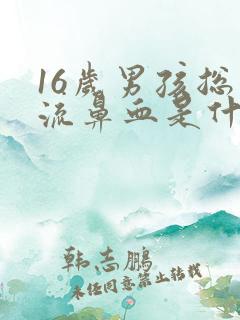 16岁男孩总
流鼻血是什
韩志鹏
未经同意禁止转载